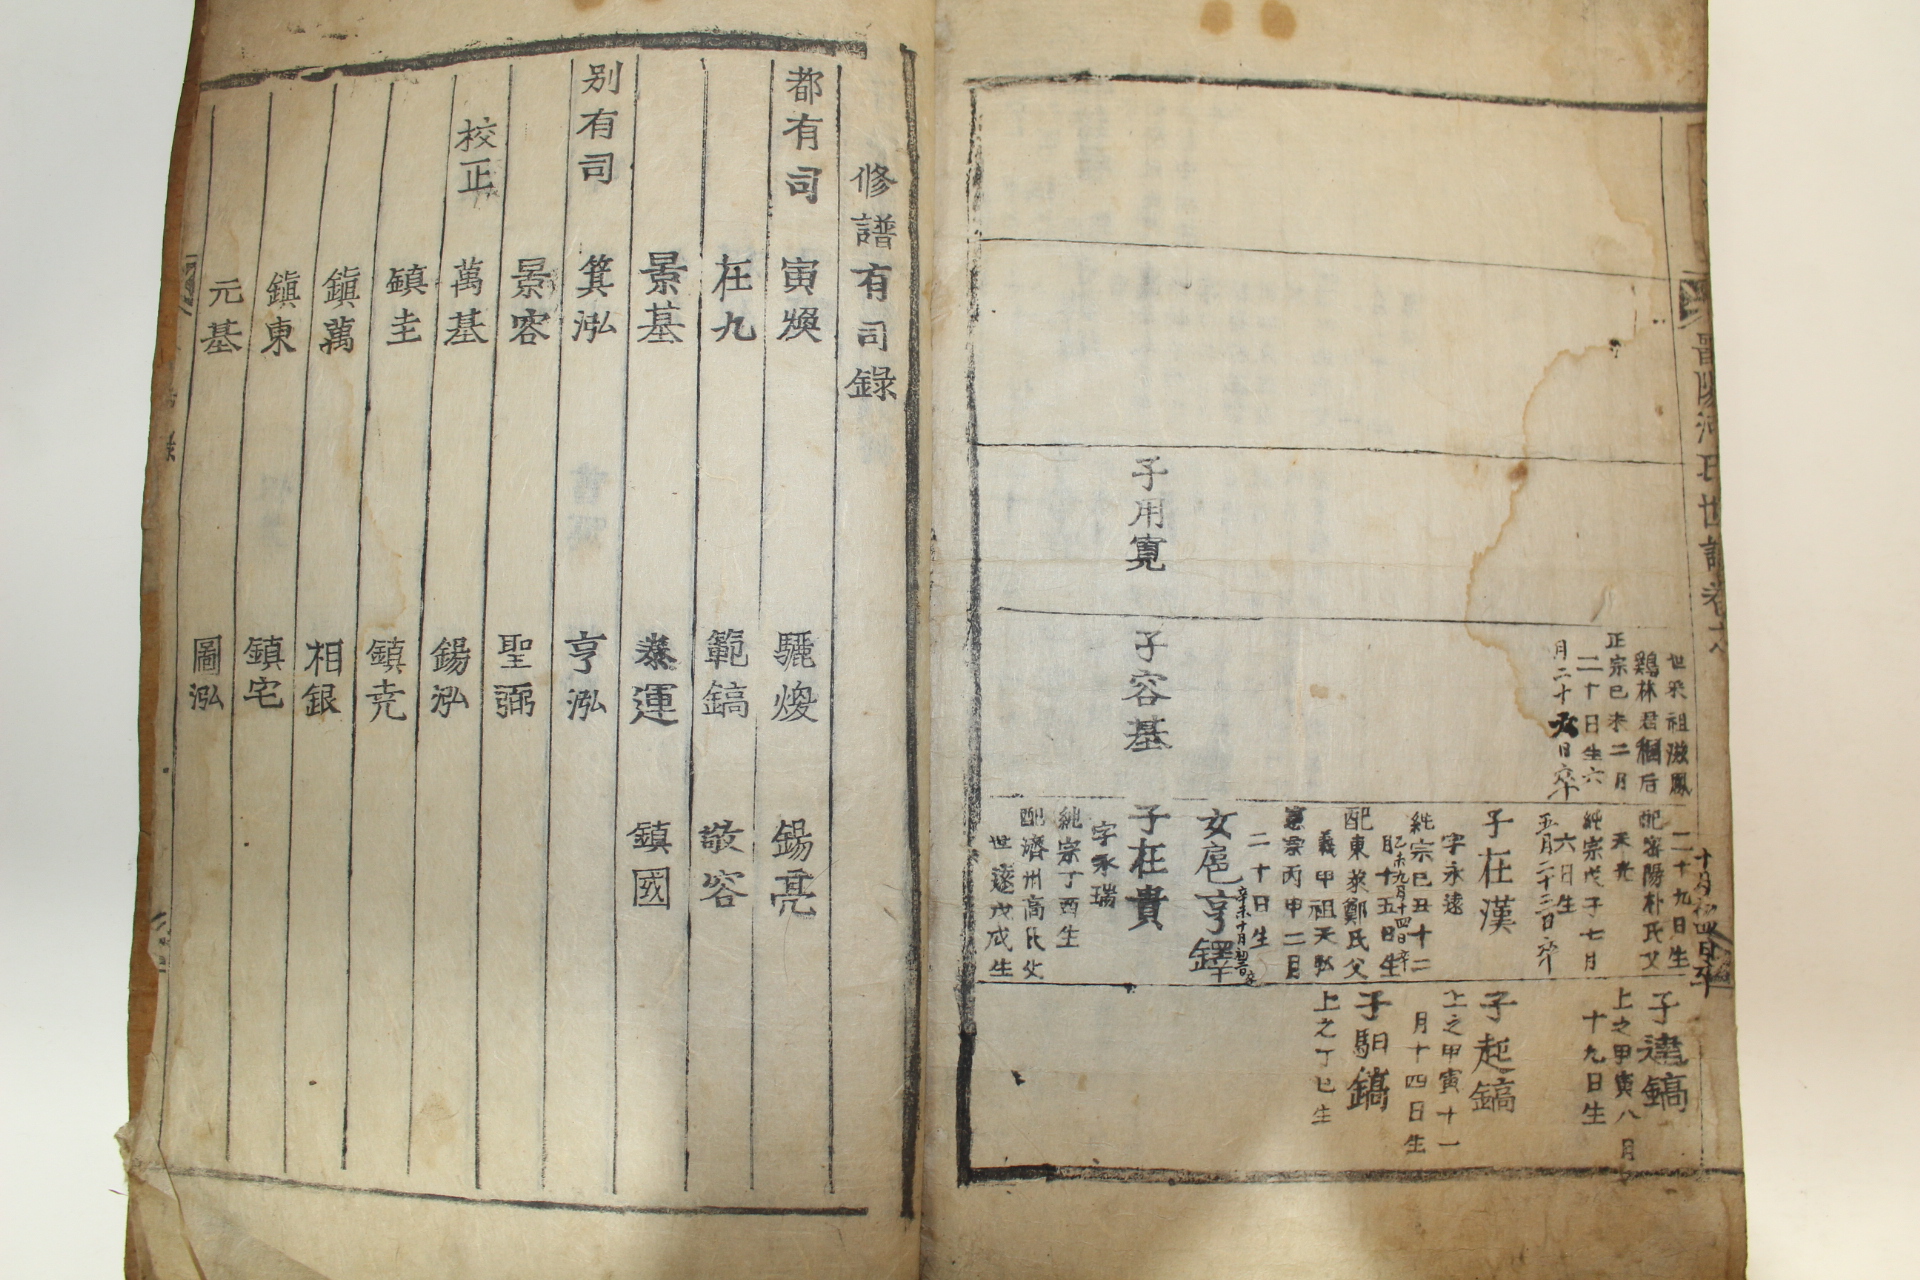 晋陽河氏世譜卷六
十月初四日卒
世采祖滋鳳
鷄林君稛后
正宗己未二月
二十日生六
月二十九日卒
子用寛
子容基
二十九日生
配密陽朴氏父
天光
純宗戊子七月
六日生
五月二十三日卒
子在漢
字永遠
純宗己丑十二
月十五日生
己未九月十四日卒
配東萊鄭氏父
義甲祖天弘
憲宗丙申二月
二十日生
女扈亨鐸
子在貴
字永瑞
純宗丁酉生
配濟州高氏父
世遠戊戌生
子達鎬
上之甲寅八月
十九日生
子起鎬
上之甲寅十一
月十四日生
子馹鎬
上之丁巳生
修譜有司錄
都有司 寅煥 驪煥 錫亮
在九 範鎬 敬容
景基 泰運 鎮國
別有司 箕泓 亨泓
景容 聖弼
校正 萬基 錫泓
鎮圭 鎮堯
鎮萬 相銀
鎮東 鎮宅
元基 圖泓